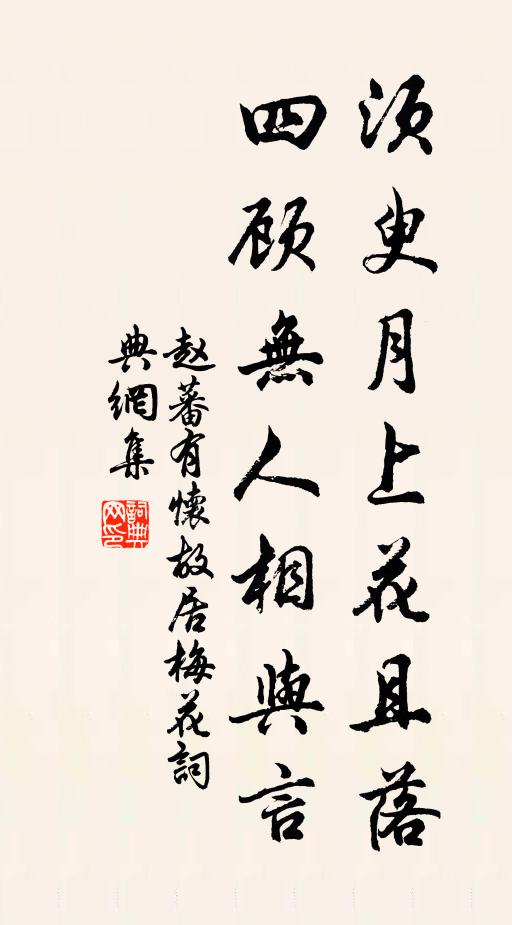 须臾月上花且落
四顾無人相與言
赵蕃有懷故居梅花詞
典網集
詞典网印